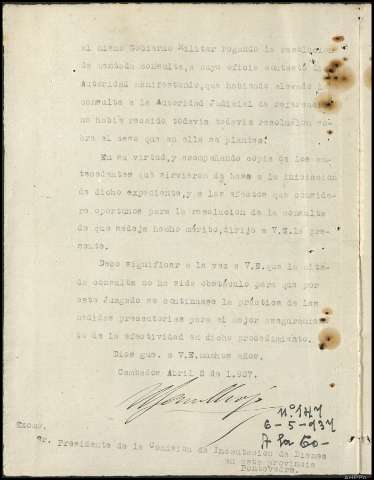 al mismo Gobierno Militar rogando la resolucion
de mentada consulta, a cuyo oficio contestó
Autoridad manifestando, que habiendo elevado
consulta a la Autoridad Judicial de referencia
no había recaído todavía resolucion so-
bre el caso que en ella se plantea.
En su virtud, y acompañando copia de los an-
tecedentes que sirvieron de base a la iniciacion
de dicho expediente, y a los efectos que conside-
re oportunos para la resolucion de la consulta
de que se deja hecho mérito, dirijo a V.E. la pre-
sente.
Debo significar a la vez a V.E. que la cita-
da consulta no ha sido obstáculo para que por
este Juzgado se continuase la práctica de las
medidas precautorias para el mejor aseguramien-
to de la efectividad en dicho procedimiento.
Dios gue. a V.E. muchos años.
Cambados Abril 2 de 1.937.
nº 147
6-5-937
A la Co-
Excmo.
Sr. Presidente de la Comision de Incautacion de Bienes
en esta provincia
Pontevedra.
AHPPo